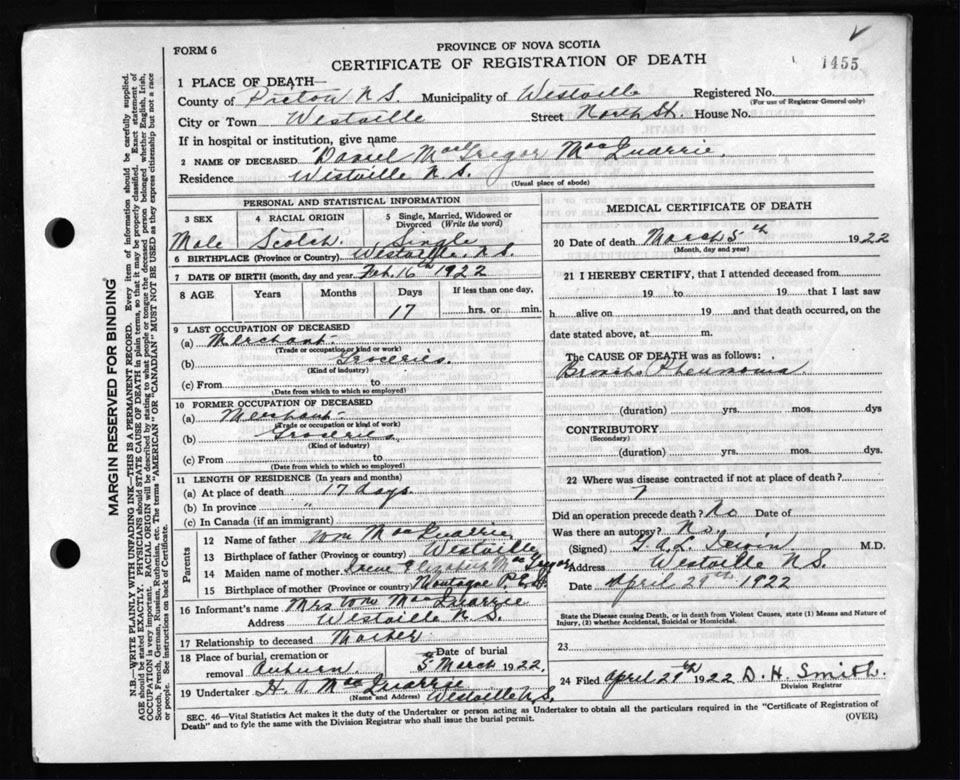 FORM 6
PROVINCE OF NOVA SCOTIA
CERTIFICATE OF REGISTRATION OF DEATH
1455
1 PLACE OF DEATH—
County of Pictou N S. Municipality of Westville Registered No.
(For use of Registrar General only)
City or Town Westville Street North St. House No.
If in hospital or institution, give name
2 NAME OF DECEASED Daniel MacGregor MacQuarrie.
Residence Westville N. S.
(Usual place of abode)
PERSONAL AND STATISTICAL INFORMATION
3 SEX 4 RACIAL ORIGIN 5 Single, Married, Widowed or Divorced (Write the word)
Male Scotch. Single
6 BIRTHPLACE (Province or Country) Westville, N. S.
7 DATE OF BIRTH (month, day and year) Feb. 16th 1922
8 AGE Years Months Days If less than one day,
17 hrs. or min.
9 LAST OCCUPATION OF DECEASED
(a) Merchant.
(Trade or occupation or kind or work)
(b) Groceries.
(Kind of industry)
(c) From to
(Date from which to which so employed)
10 FORMER OCCUPATION OF DECEASED
(a) Merchant.
(Trade or occupation or kind of work)
(b) Groceries
(Kind of industry)
(c) From to
(Date from which to which so employed)
11 LENGTH OF RESIDENCE (In years and months)
(a) At place of death 17 days.
(b) In province "
(c) In Canada (if an immigrant)
Parents
12 Name of father Wm MacQuarrie.
13 Birthplace of father (Province or country) Westville
14 Maiden name of mother Irene Elizabeth MacGregor
15 Birthplace of mother (Province or country) Montague P.E.I.
16 Informant's name Mrs Wm MacQuarrie
Address Westville N. S.
17 Relationship to deceased Mother
18 Place of burial, cremation or removal Auburn Date of burial 5 March 1922.
19 Undertaker H. A. MacQuarrie Westville N.S.
(Name and Address)
MEDICAL CERTIFICATE OF DEATH
20 Date of death March 5th 1922
(Month, day and year)
21 I HEREBY CERTIFY, that I attended deceased from
19 to 19 that I last saw
h alive on 19 and that death occurred, on
date stated above, at m.
The CAUSE OF DEATH was as follows:
Broncho Pneumonia
(duration) yrs. mos. dys
CONTRIBUTORY
(Secondary)
(duration) yrs. mos. dys.
22 Where was disease contracted if not at place of death?
?
Did an operation precede death? No Date of
Was there an autopsy? No.
(Signed) M.D.
Address Westville N.S.
Date April 29th 1922
State the Disease causing Death, or in death from Violent Causes, state (1) Means and Nature of Injury, (2) whether Accidental, Suicidal or Homicidal.
23
24 Filed April 29th 1922 D. H. Smith.
Division Registrar
SEC. 46—Vital Statistics Act makes it the duty of the Undertaker or person acting as Undertaker to obtain all the particulars required in the "Certificate of Registration of
Death" and to fyle the same with the Division Registrar who shall issue the burial permit.
(OVER)
MARGIN RESERVED FOR BINDING
N.B.—WRITE PLAINLY WITH UNFADING INK—THIS IS A PERMANENT RECORD. Every item of information should be carefully supplied.
AGE should be stated EXACTLY. PHYSICIANS should STATE CAUSE OF DEATH in plain terms, so that it may be properly classified. Exact statement of
OCCUPATION is very important. RACIAL ORIGIN will be described by stating to what people or tongue the deceased person belonged whether English, Irish,
Scotch, French, German, Russian, Ruthenian, etc. The terms "AMERICAN" OR "CANADIAN" MUST NOT BE USED as they express citizenship but not a race
or people. See instructions on back of Certificate.